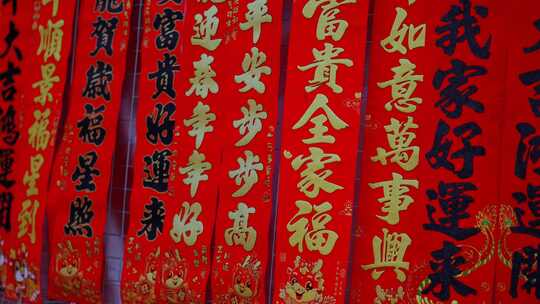 吉鴻運開
我家好運來
如意萬事興
富貴全家福
年安步步高
迎春年年好
富貴好運來
賀歲福星照
順景福星到
大吉鴻運開